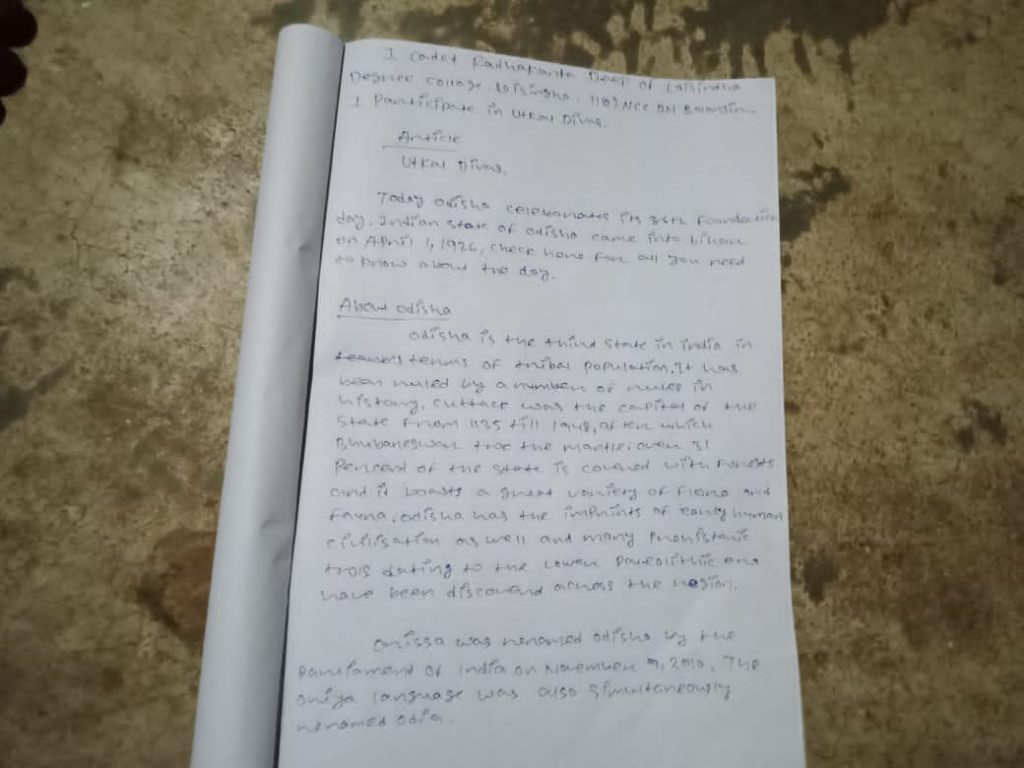 I cadet Radhakanta Deep of Loisingha
Degree collage. Loisingha. 11(O) NCC BN Balangir.
I Participate in Utkal Divas.
Article
Utkal Divas.
Today odisha celebarates its 36th Foundation
day. Indian state of odisha came into
on April 1, 1926, check here for all you need
to know about the day.
About odisha
Odisha is the third State in india in
terms of tribal population. It has
been ruled by a number of rules in
history. Cuttack was the capital of the
State from 1135 till 1948, after which
Bhubaneswar the mantle. over 31
Percent of the state is covered with Forests
and it boasts a great variety of Flora and
Fauna. odisha has the imprints of early human
civilisation as well and many
dating to the Lower era
have been discoverd across the region.
Orissa was renamed odisha by the
Parliament of India on November 9, 2010. The
oriya language was also simultaneously
renamed odia.